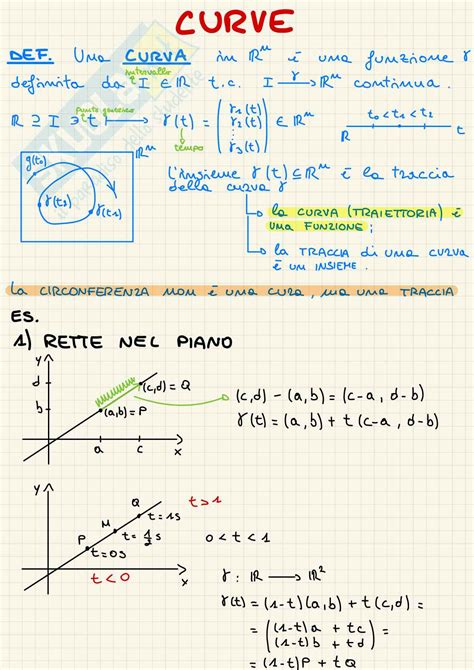 CURVE
DEF. Una CURVA in ℝⁿ è una funzione γ
intervallo
definita da I ∈ ℝ t.c. I → ℝⁿ continua.
punto generico
ℝ ⊇ I ∋ t ⟼ γ(t) = (γ₁(t) γ₂(t) ⋮ γ₃(t)) ∈ ℝⁿ
tempo
t₀ < t₁ < t₂
ℝ t
ℝⁿ
g(t₀)
γ(t₂) γ(t₁)
L'insieme γ(t) ⊆ ℝⁿ è la traccia
della curva γ
la CURVA (TRAIETTORIA) è
UNA FUNZIONE;
la TRACCIA di una CURVA
È UN INSIEME.
la CIRCONFERENZA NON È UNA CURA, MA UNA TRACCIA
ES.
1) RETTE NEL PIANO
y
d (c,d) = Q
b (a,b) = P
a c x
(c,d) - (a,b) = (c-a, d-b)
γ(t) = (a,b) + t(c-a, d-b)
y
Q t > 1
M t = 1s
P t = 1/2 s
t = 0s
0 < t < 1
t < 0 x
γ: ℝ → ℝ²
γ(t) = (1-t)(a,b) + t(c,d) =
= ((1-t)a + tc (1-t)b + td) =
= (1-t)P + tQ